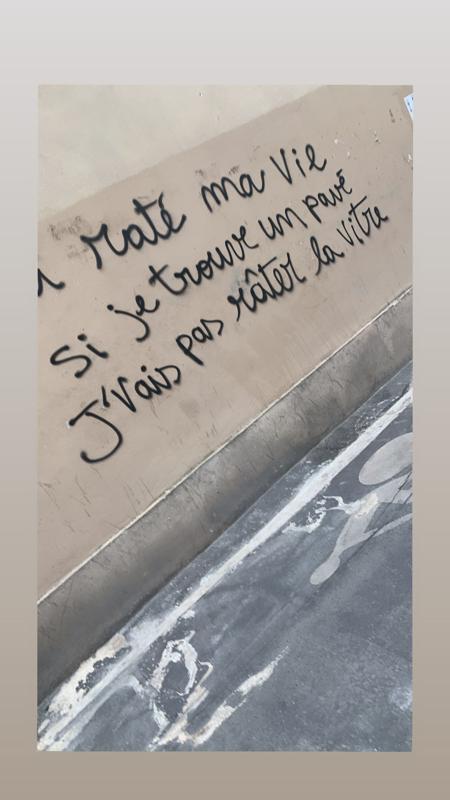 raté ma vie
Si je trouve un pavé
J'vais pas râter la vitre